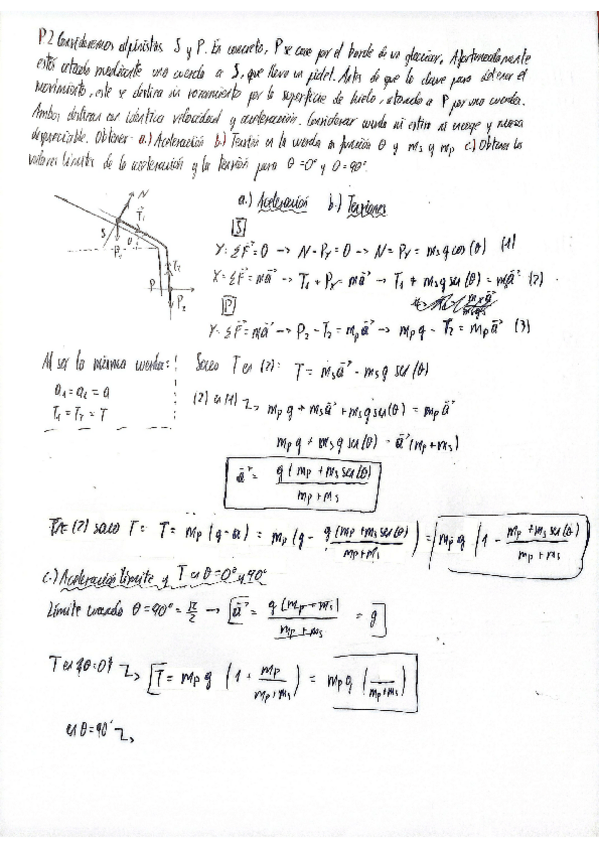 P.2 Consideremos alpinistas S y P. En concreto, P se cae por el borde de un glaciar. Afortunadamente
está atado mediante una cuerda a S, que lleva un piolet. Antes de que lo clave para detener el
movimiento, este se desliza sin rozamiento por la superficie de hielo, atando a P por una cuerda.
Ambos deslizan con idéntica velocidad y aceleración. Considerar cuerda ni estira ni encoge y masa
despreciable. Obtener a.) Aceleración b.) Tensión en la cuerda en función θ y ms y mp c.) Obtener los
valores límites de la aceleración y la tensión para θ=0° y θ=90°.
a.) Aceleración b.) Tensiones
N
T1
S
θ
T2
P
P2
[S]
Y: ΣF=0 → N - Py = 0 → N = Py = ms g cos(θ) (1)
X: ΣF = ma → T1 + Px = ma → T1 + ms g sen(θ) = ms a (2)
[P]
Y: ΣF = ma → P2 - T2 = mp a → mp g - T2 = mp a (3)
Al ser la misma cuerda:
a1 = a2 = a
T1 = T2 = T
Saco T en (2): T = ms a - ms g sen(θ)
mp g + ms a + ms g sen(θ) = mp a
mp g + ms g sen(θ) = a (mp + ms)
a = g (mp + ms sen(θ)) / mp + ms
(2) saco T: T = mp (g - a) = mp (g - g (mp + ms sen(θ)) / mp + ms) = mp g (1 - mp + ms sen(θ) / mp + ms)
c.) Aceleración límite y T en θ=0° y 90°
Límite cuando θ = 90° = π/2 → [a = g (mp + ms) / mp + ms = g]
T en θ=0° → [T = mp g (1 + mp / mp + ms) = mp g ( / mp + ms)
en θ=90° →